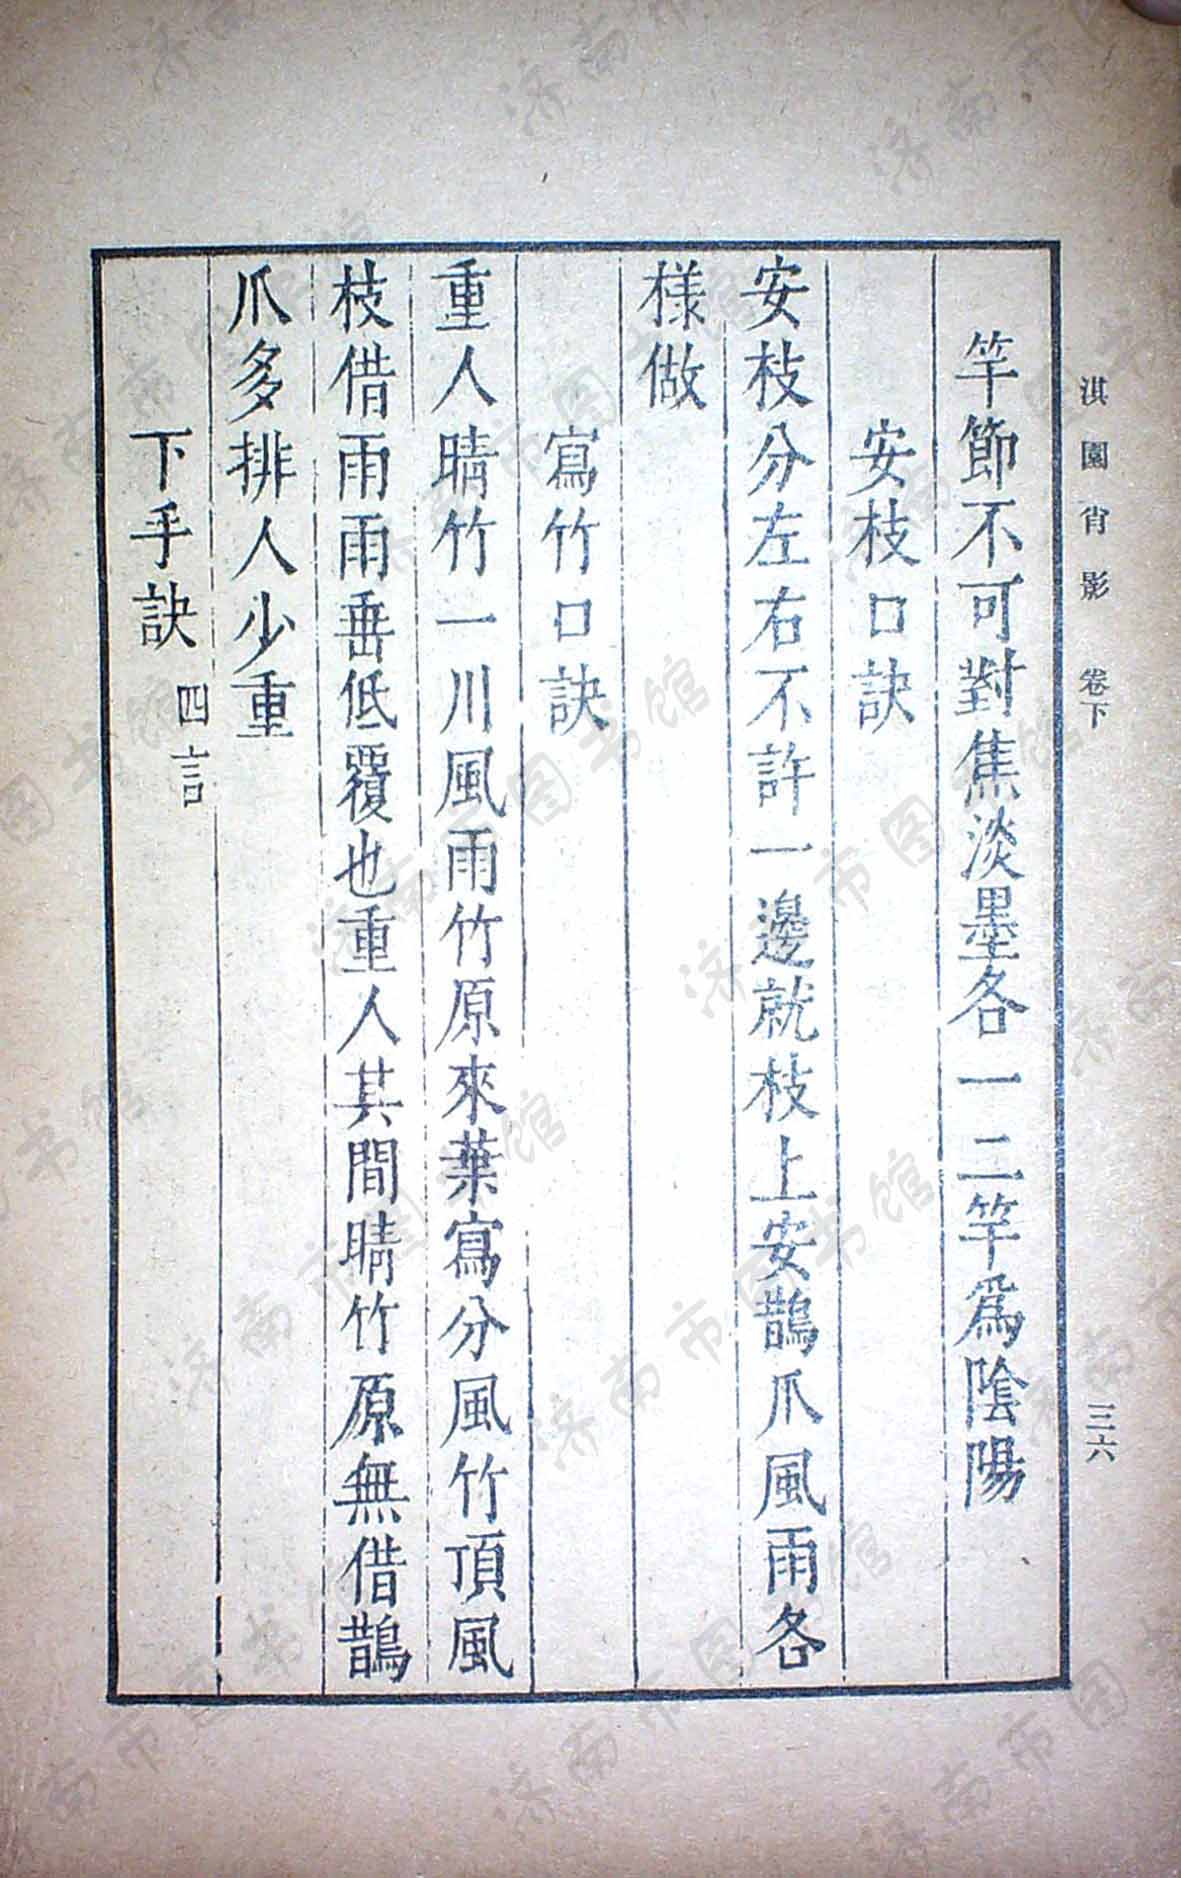 淇園肖影 卷下 三六
竿節不可對焦淡墨各一二竿爲陰陽
安枝口訣
安枝分左右不許一邊就枝上安鵲爪風雨各
樣做
寫竹口訣
重人晴竹一川風雨竹原來葉寫分風竹頂風
枝借雨雨垂低覆也重人其間晴竹原無借鵲
爪多排人少重
下手訣 四言
济南市图书馆